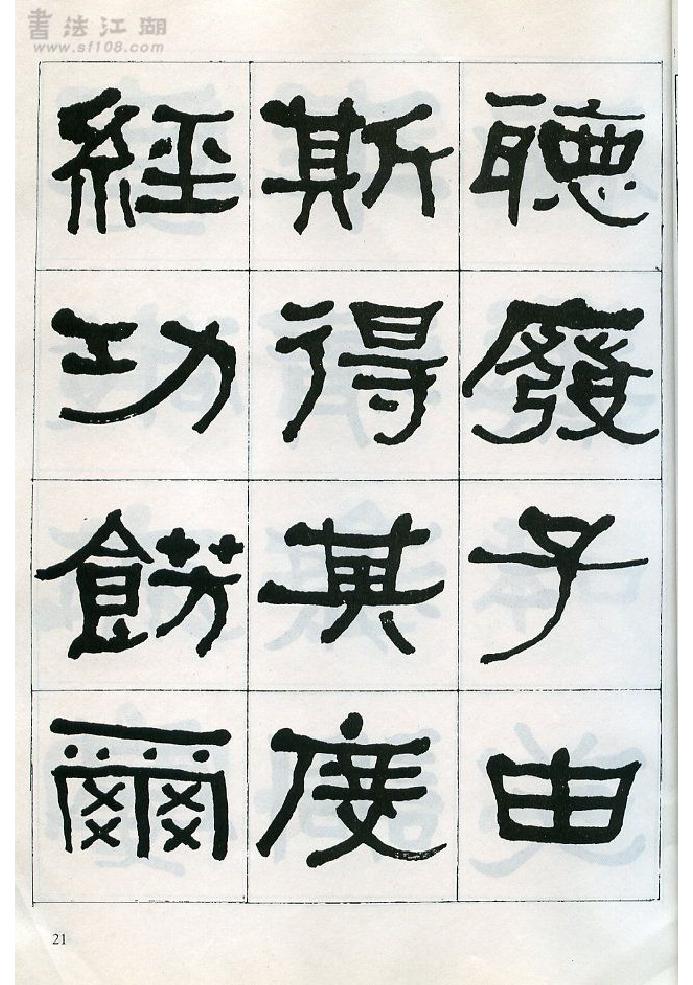 書法江湖
www.sf108.com
聽廢子由
斯得黃度
經功餝爾
21